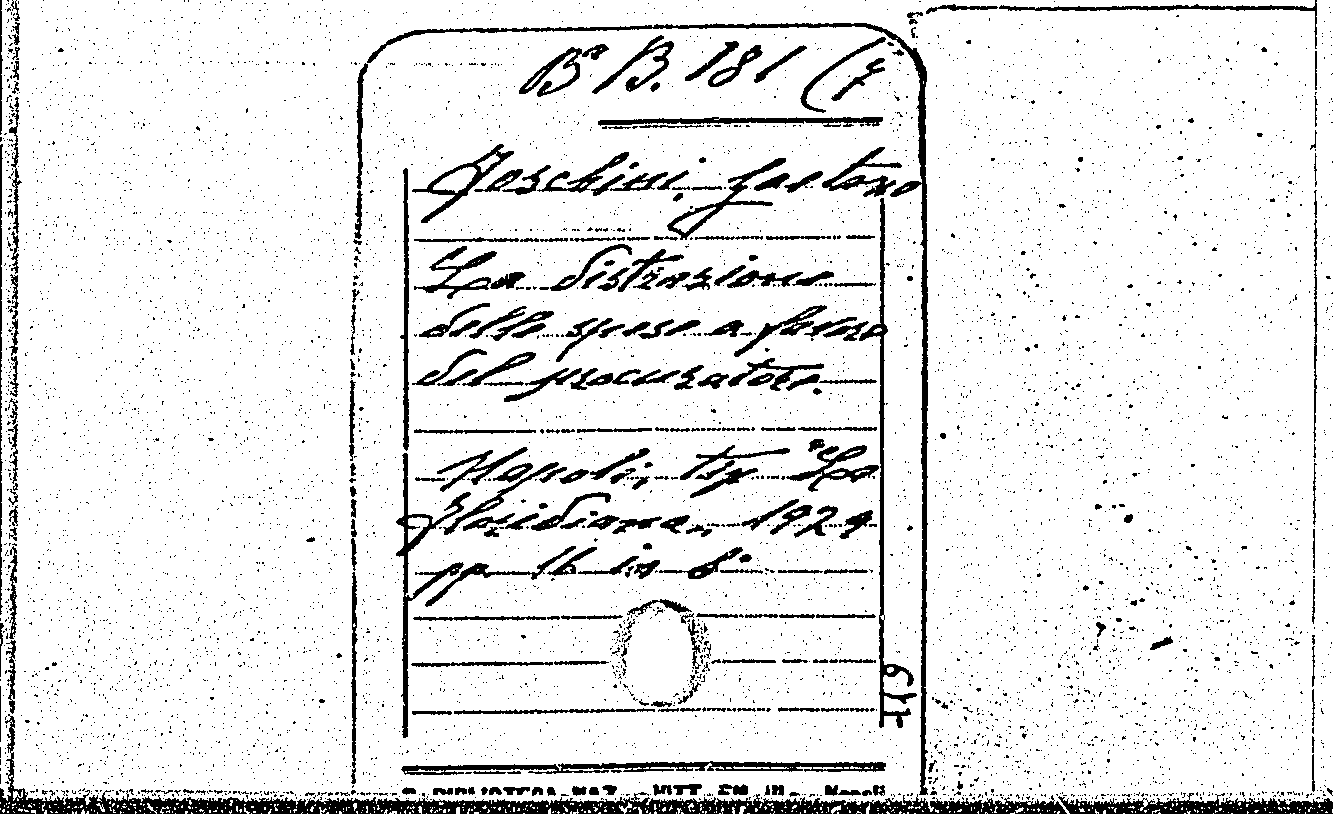 Bª B. 181 (7
Foschini, Gaetano
La distrazione
delle spese a favore
del procuratore.
Napoli, tip "La
Floridiana", 1929
pp. 16 in 8°
R. BIBLIOTECA NAZ. VITT. EM. III. - Napoli